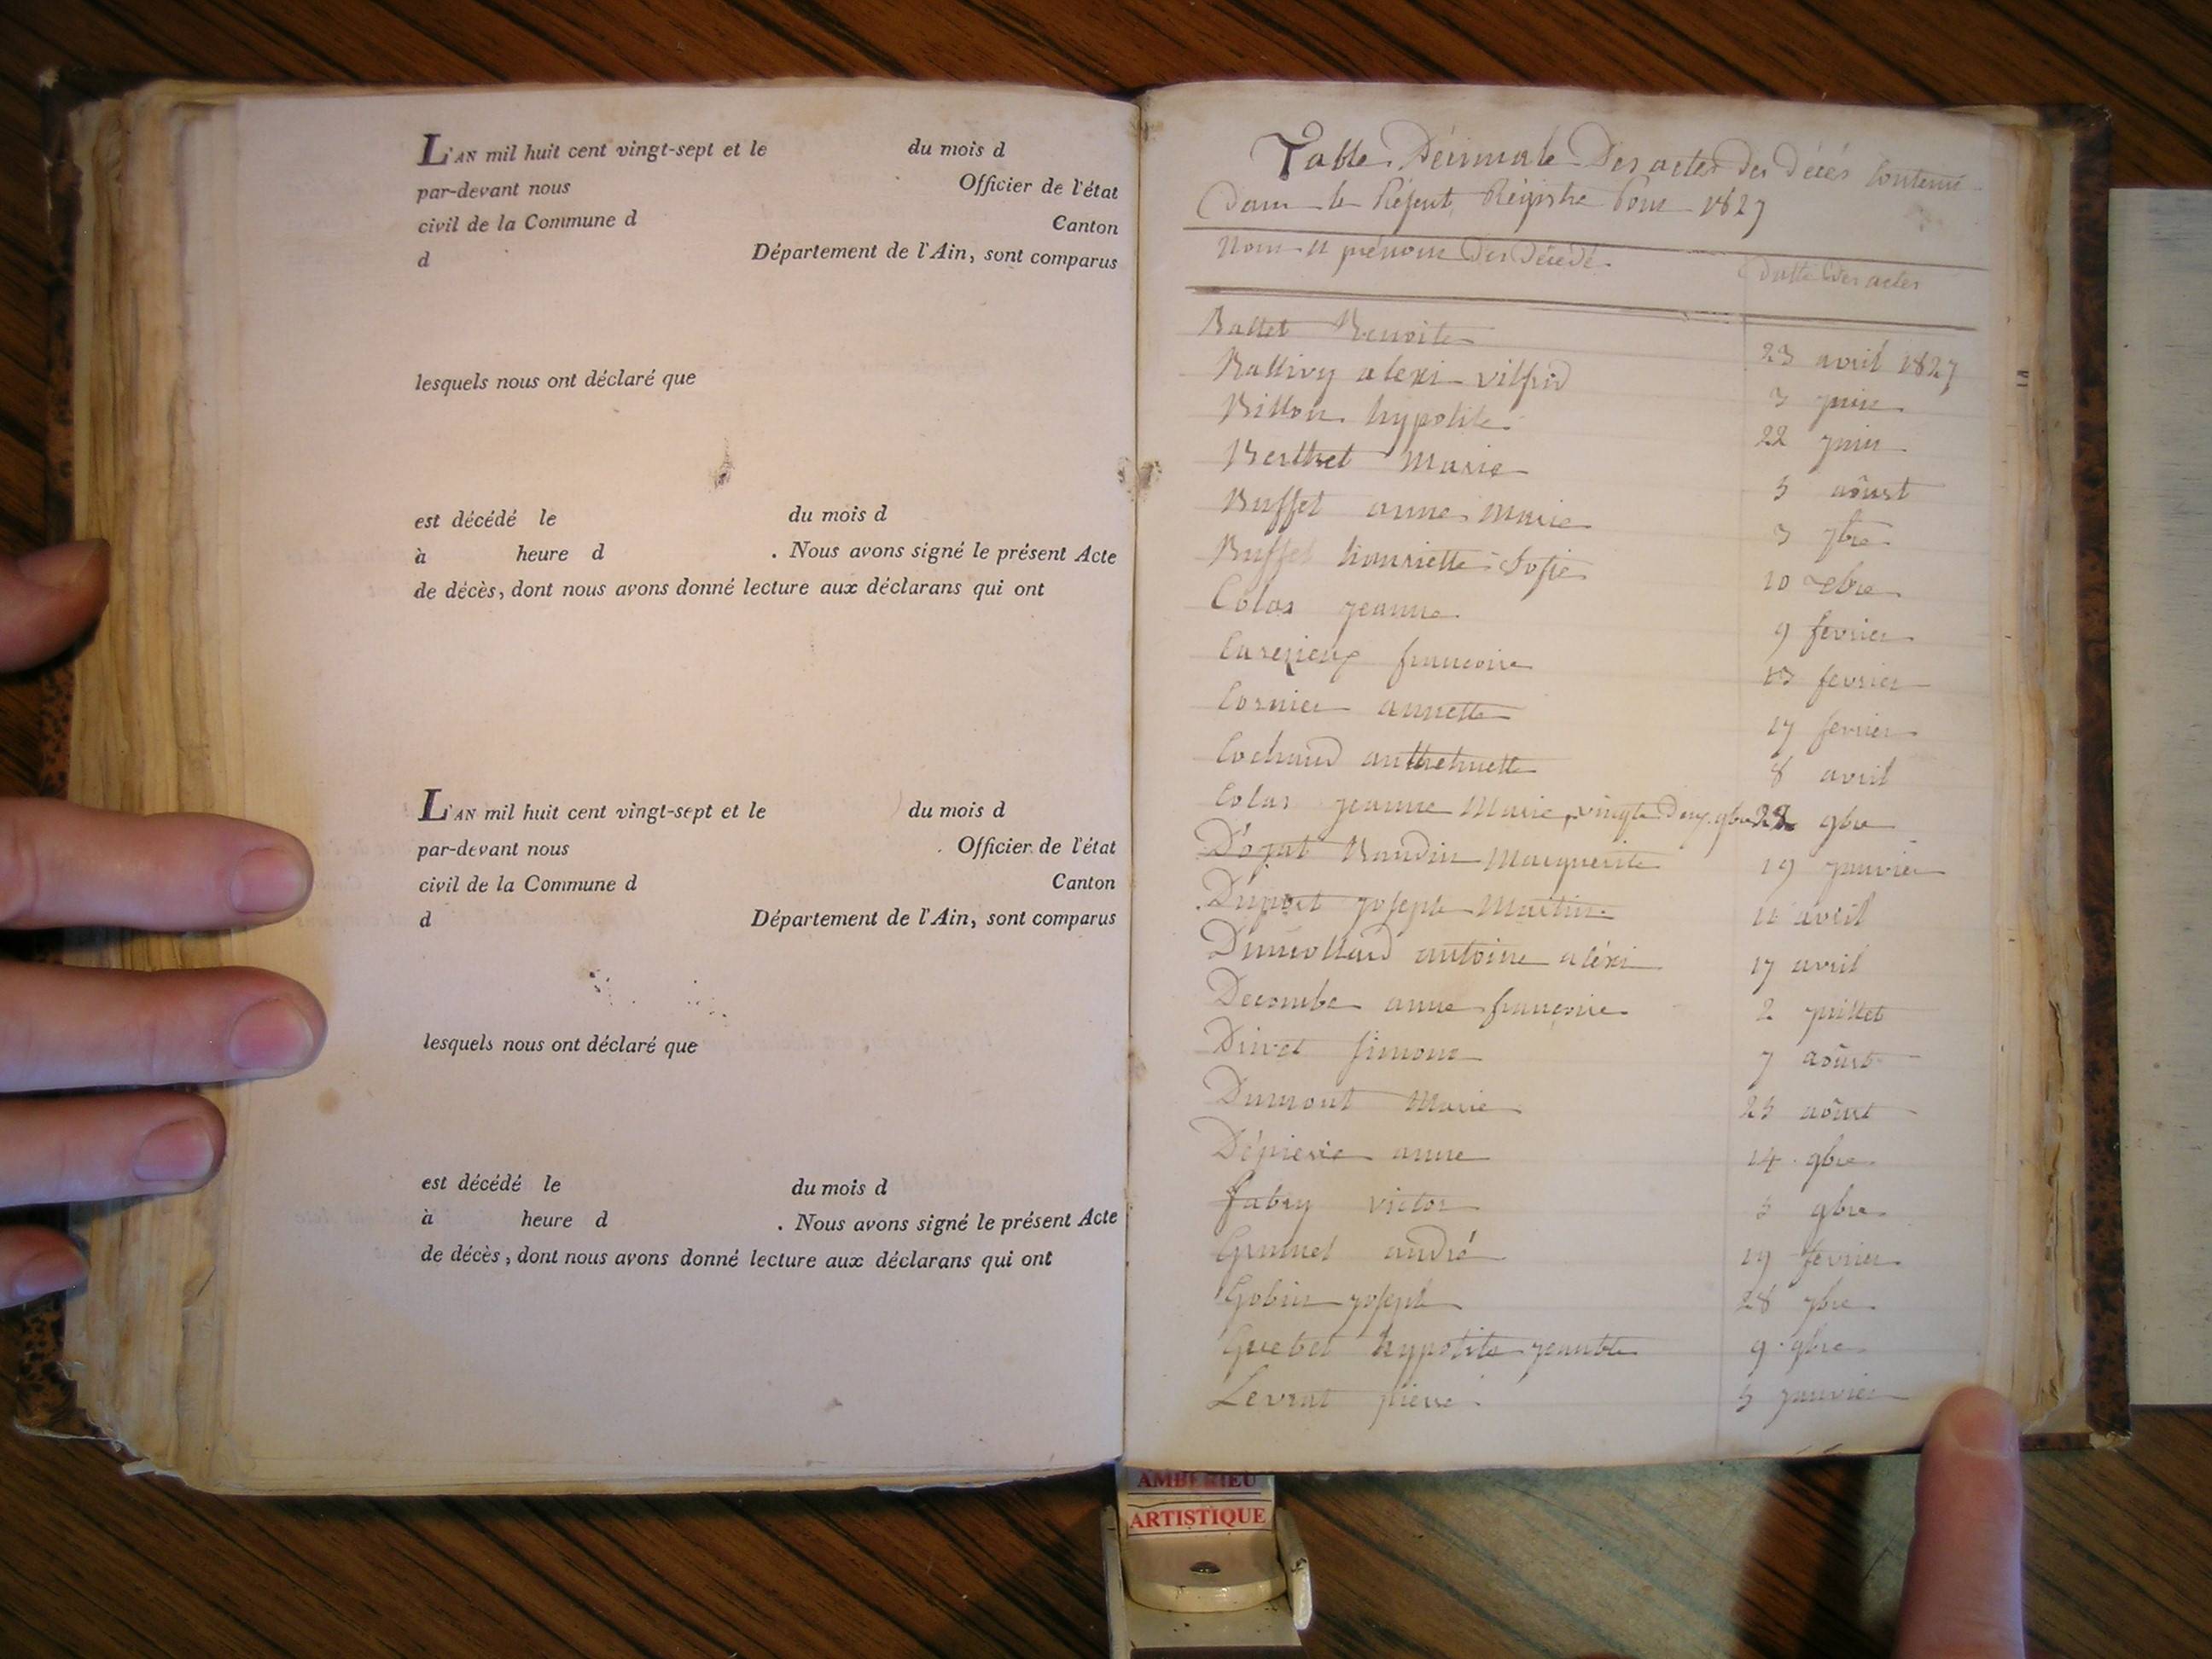 L'AN mil huit cent vingt-sept et le du mois d
par-devant nous Officier de l'état
civil de la Commune d Canton
d Département de l'Ain, sont comparus
lesquels nous ont déclaré que
est décédé le du mois d
à heure d . Nous avons signé le présent Acte
de décès, dont nous avons donné lecture aux déclarans qui ont
L'AN mil huit cent vingt-sept et le du mois d
par-devant nous . Officier de l'état
civil de la Commune d Canton
d Département de l'Ain, sont comparus
lesquels nous ont déclaré que
est décédé le du mois d
à heure d . Nous avons signé le présent Acte
de décès, dont nous avons donné lecture aux déclarans qui ont
Table Décimale Des actes des décés Contenue
Dans le Présent Régistre Pour 1827
Nom et prénom Des Décédé Datte Des actes
Ballet Benoite 23 avril 1827
Ballivy alexi vilfrid 3 juin
Billon hypolite 22 juin
Berthet Marie 5 aôust
Buffet anne Marie 3 7bre
Buffet henriette Sofie 10
Colas jeanne 9 fevrier
françoise 13 fevrier
Cornier annette 17 fevrier
Cochaud 8 avril
Colas jeanne Marie, vingte Deux gbre 22 gbre
Baudin Marguerite 19 janvier
Dupost joseph Martin 11 avril
Dumollard antoine aléxi 17 avril
Decombe anne françoise 2 juillet
Divet simone 7 aôust
Dumont Marie 25 aôust
anne 14 gbre
fabry victor 5 gbre
andré 19 fevrier
Gobin joseph 28 7bre
hypolite 9 gbre
Levrat pierre 5 janvier
AMBERIEU
ARTISTIQUE